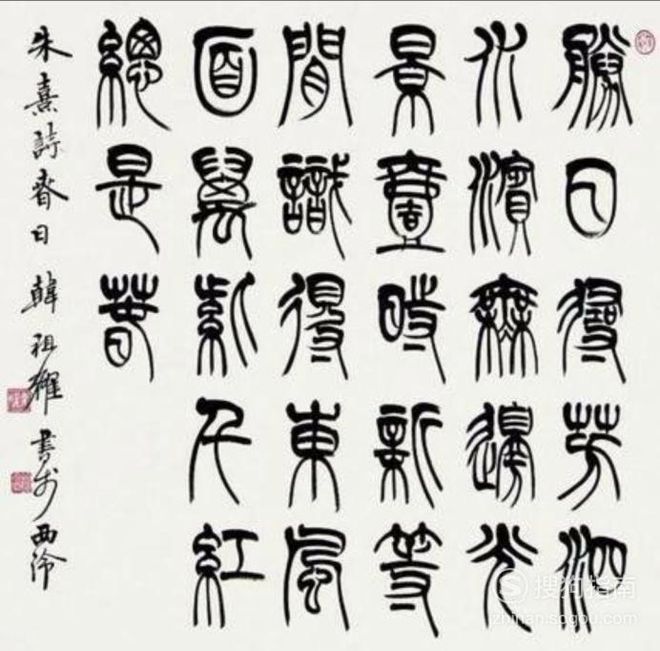 勝日尋芳泗
水濱無邊光
景壹時新等
閒識得東風
面萬紫千紅
總是春
朱熹詩春日 韓祖耀書於西泠
搜狗指南
zhinan.sogou.com